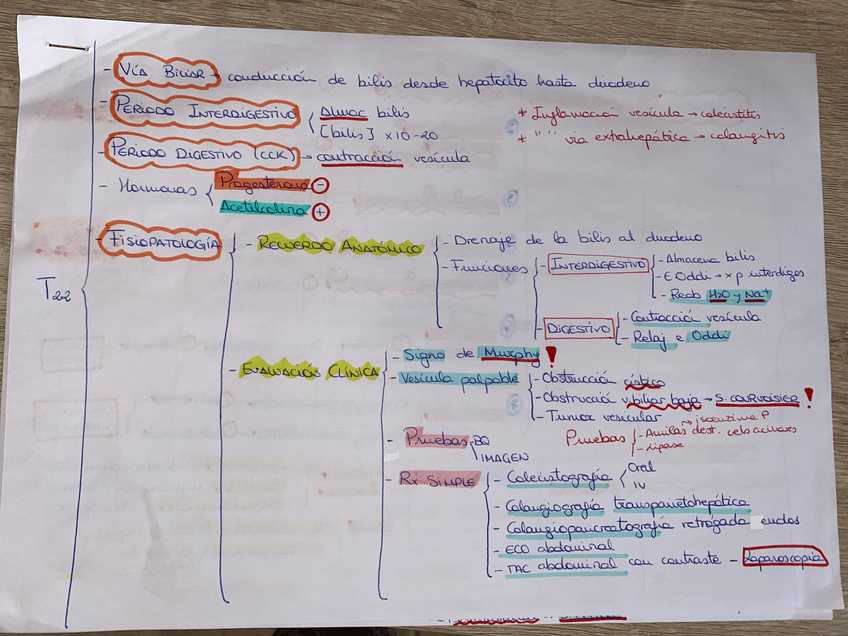 - VÍA BILIAR → conducción de bilis desde hepatocito hasta duodeno
- PERIODO INTERDIGESTIVO { Almac bilis
[bilis] x10-20
* Inflamación vesícula → colecistitis
* " " vía extrahepática → colangitis
- PERIODO DIGESTIVO (CCK) → contracción vesícula
- Hormonas { Progesterona ⊖
Acetilcolina ⊕
T22
- FISIOPATOLOGÍA
- RECUERDO ANATÓMICO
- Drenaje de la bilis al duodeno
- Funciones
- INTERDIGESTIVO
- Almacena bilis
- E Oddi → x p interdiges
- Reab H2O y Na+
- DIGESTIVO
- Contracción vesícula
- Relaj. e Oddi
- EVALUACIÓN CLÍNICA
- Signo de Murphy !
- Vesícula palpable
- Obstrucción cístico
- Obstrucció v.biliar baja → S. COURVOISIER !
- Tumor vesicular
- Pruebas BQ
IMAGEN
Pruebas { - Amilas dest. cels acinares
→ isoenzima P
- Lipasa
- RX SIMPLE
- Colecistografía { Oral
IV
- Colangiografía transparietohepática
- Colangiopancreatografía retrógada endos
- ECO abdominal
- TAC abdominal con contraste - Laparoscopia